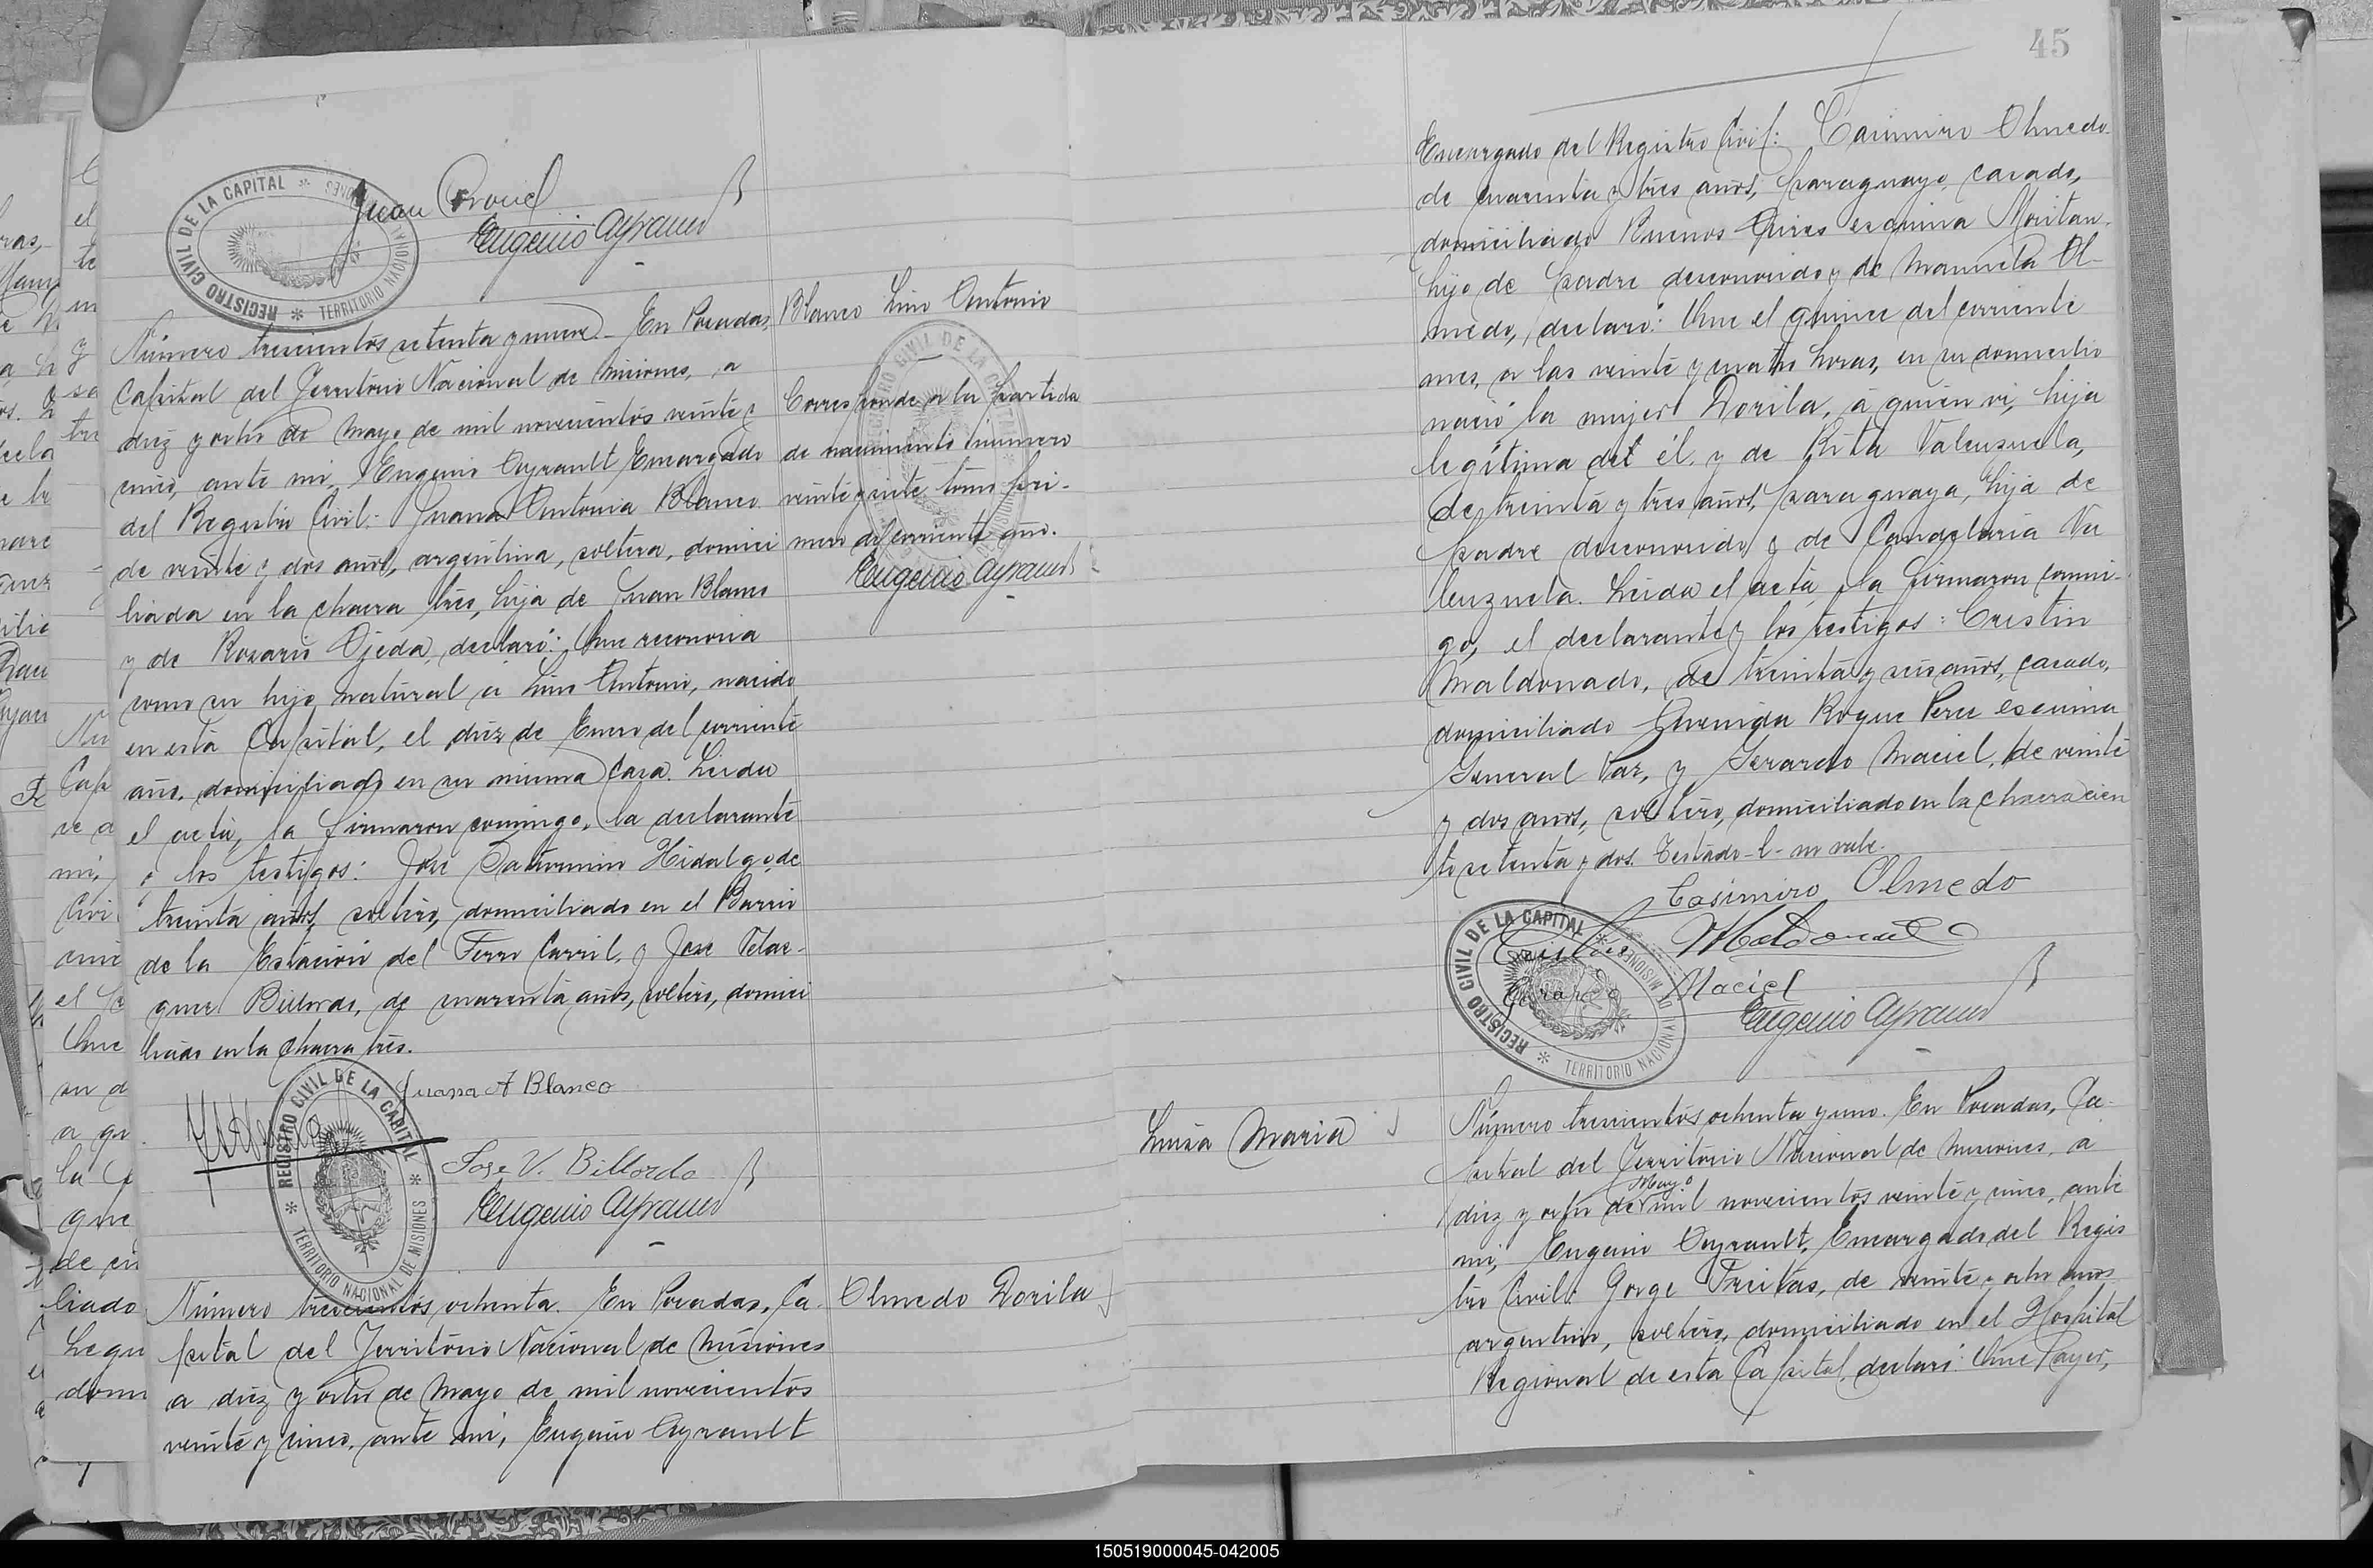 Juan
Eugenio Ayrault
REGISTRO CIVIL DE LA CAPITAL * TERRITORIO NACIONAL DE MISIONES *
Número trescientos setenta y nueve. En Posadas,
Capital del Territorio Nacional de Misiones, a
diez y ocho de Mayo de mil novecientos veinte y
cinco, ante mi, Eugenio Ayrault Encargado
del Registro Civil: Juana Antonia Blanco
de veinte y dos años, argentina, soltera, domici
liada en la chacra tres, hija de Juan Blanco
y de Rosario Ojeda, declaró: Que reconocia
como su hijo natural a Lino Antonio, nacido
en esta Capital, el diez de Enero del corriente
año, domiciliado en su misma casa. Leida
el acta, la firmaron conmigo, la declarante
y los testigos: José Saturnino Hidalgo, de
treinta años, soltero, domiciliado en el Barrio
de la Estación del Ferro Carril, y José Velas-
quez Billordo, de cuarenta años, soltero, domici
liado en la chacra tres.
Juana A Blanco
Jose V. Billordo
Eugenio Ayrault
REGISTRO CIVIL DE LA CAPITAL * TERRITORIO NACIONAL DE MISIONES *
Blanco Lino Antonio
Corresponde a la partida
de nacimiento número
veinte y siete tomo pri-
mero del corriente año.
Eugenio Ayrault
Número trescientos ochenta. En Posadas, Ca-
pital del Territorio Nacional de Misiones
a diez y ocho de Mayo de mil novecientos
veinte y cinco, ante mi, Eugenio Ayrault
Olmedo Dorila
45
Encargado del Registro Civil: Casimiro Olmedo
de cuarenta y tres años, paraguayo, casado,
domiciliado Buenos Aires esquina
hijo de padre desconocido y de Manuela Ol-
medo, declaró: Que el quince del corriente
mes, a las veinte y cuatro horas, en su domicilio
nació la mujer Dorila, á quien vi, hija
legítima del él, y de Rita Valenzuela,
de treinta y tres años, paraguaya, hija de
padre desconocido y de Candelaria Va
lenzuela. Leida el acta, la firmaron conmi-
go, el declarante y los testigos: Cristin
Maldonado, de treinta y seis años, casado,
domiciliado Avenida Roque Perez esquina
General Paz, y Gerardo Maciel, de veinte
y dos años, soltero, domiciliado en la chacra cien
to setenta y dos. Testado-l-no vale.
Casimiro Olmedo
Cristin Maldonado
Gerardo Maciel
Eugenio Ayrault
REGISTRO CIVIL DE LA CAPITAL * TERRITORIO NACIONAL DE MISIONES *
Luisa Maria
Número trescientos ochenta y uno. En Posadas, Ca-
pital del Territorio Nacional de Misiones, a
Mayo
diez y ocho de mil novecientos veinte y cinco, ante
mi, Eugenio Ayrault, Encargado del Regis
tro Civil: Jorge Freitas, de veinte y ocho años
argentino, soltero, domiciliado en el Hospital
Regional de esta Capital, declaró: Que ayer,
150519000045-042005